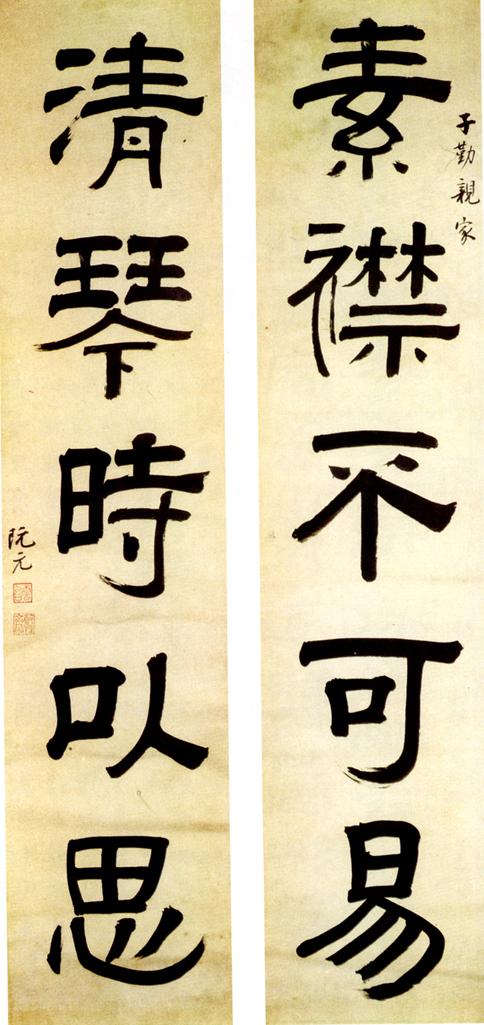 子勤親家
素襟不可易
清琴時以思
阮元